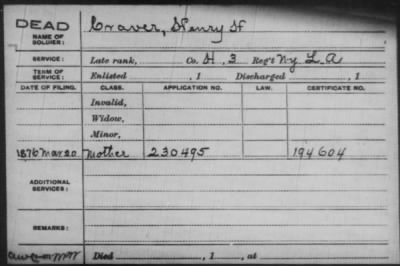 DEAD
NAME OF SOLDIER:
Craver, Henry H
SERVICE:
Late rank, Co. H, 3 Reg't Ny L.A
TERM OF SERVICE:
Enlisted , 1 Discharged , 1
DATE OF FILING. CLASS. APPLICATION NO. LAW. CERTIFICATE NO.
Invalid,
Widow,
Minor,
1876 Mar 20 Mother 230495 194604
ADDITIONAL SERVICES:
REMARKS:
Died , 1 , at